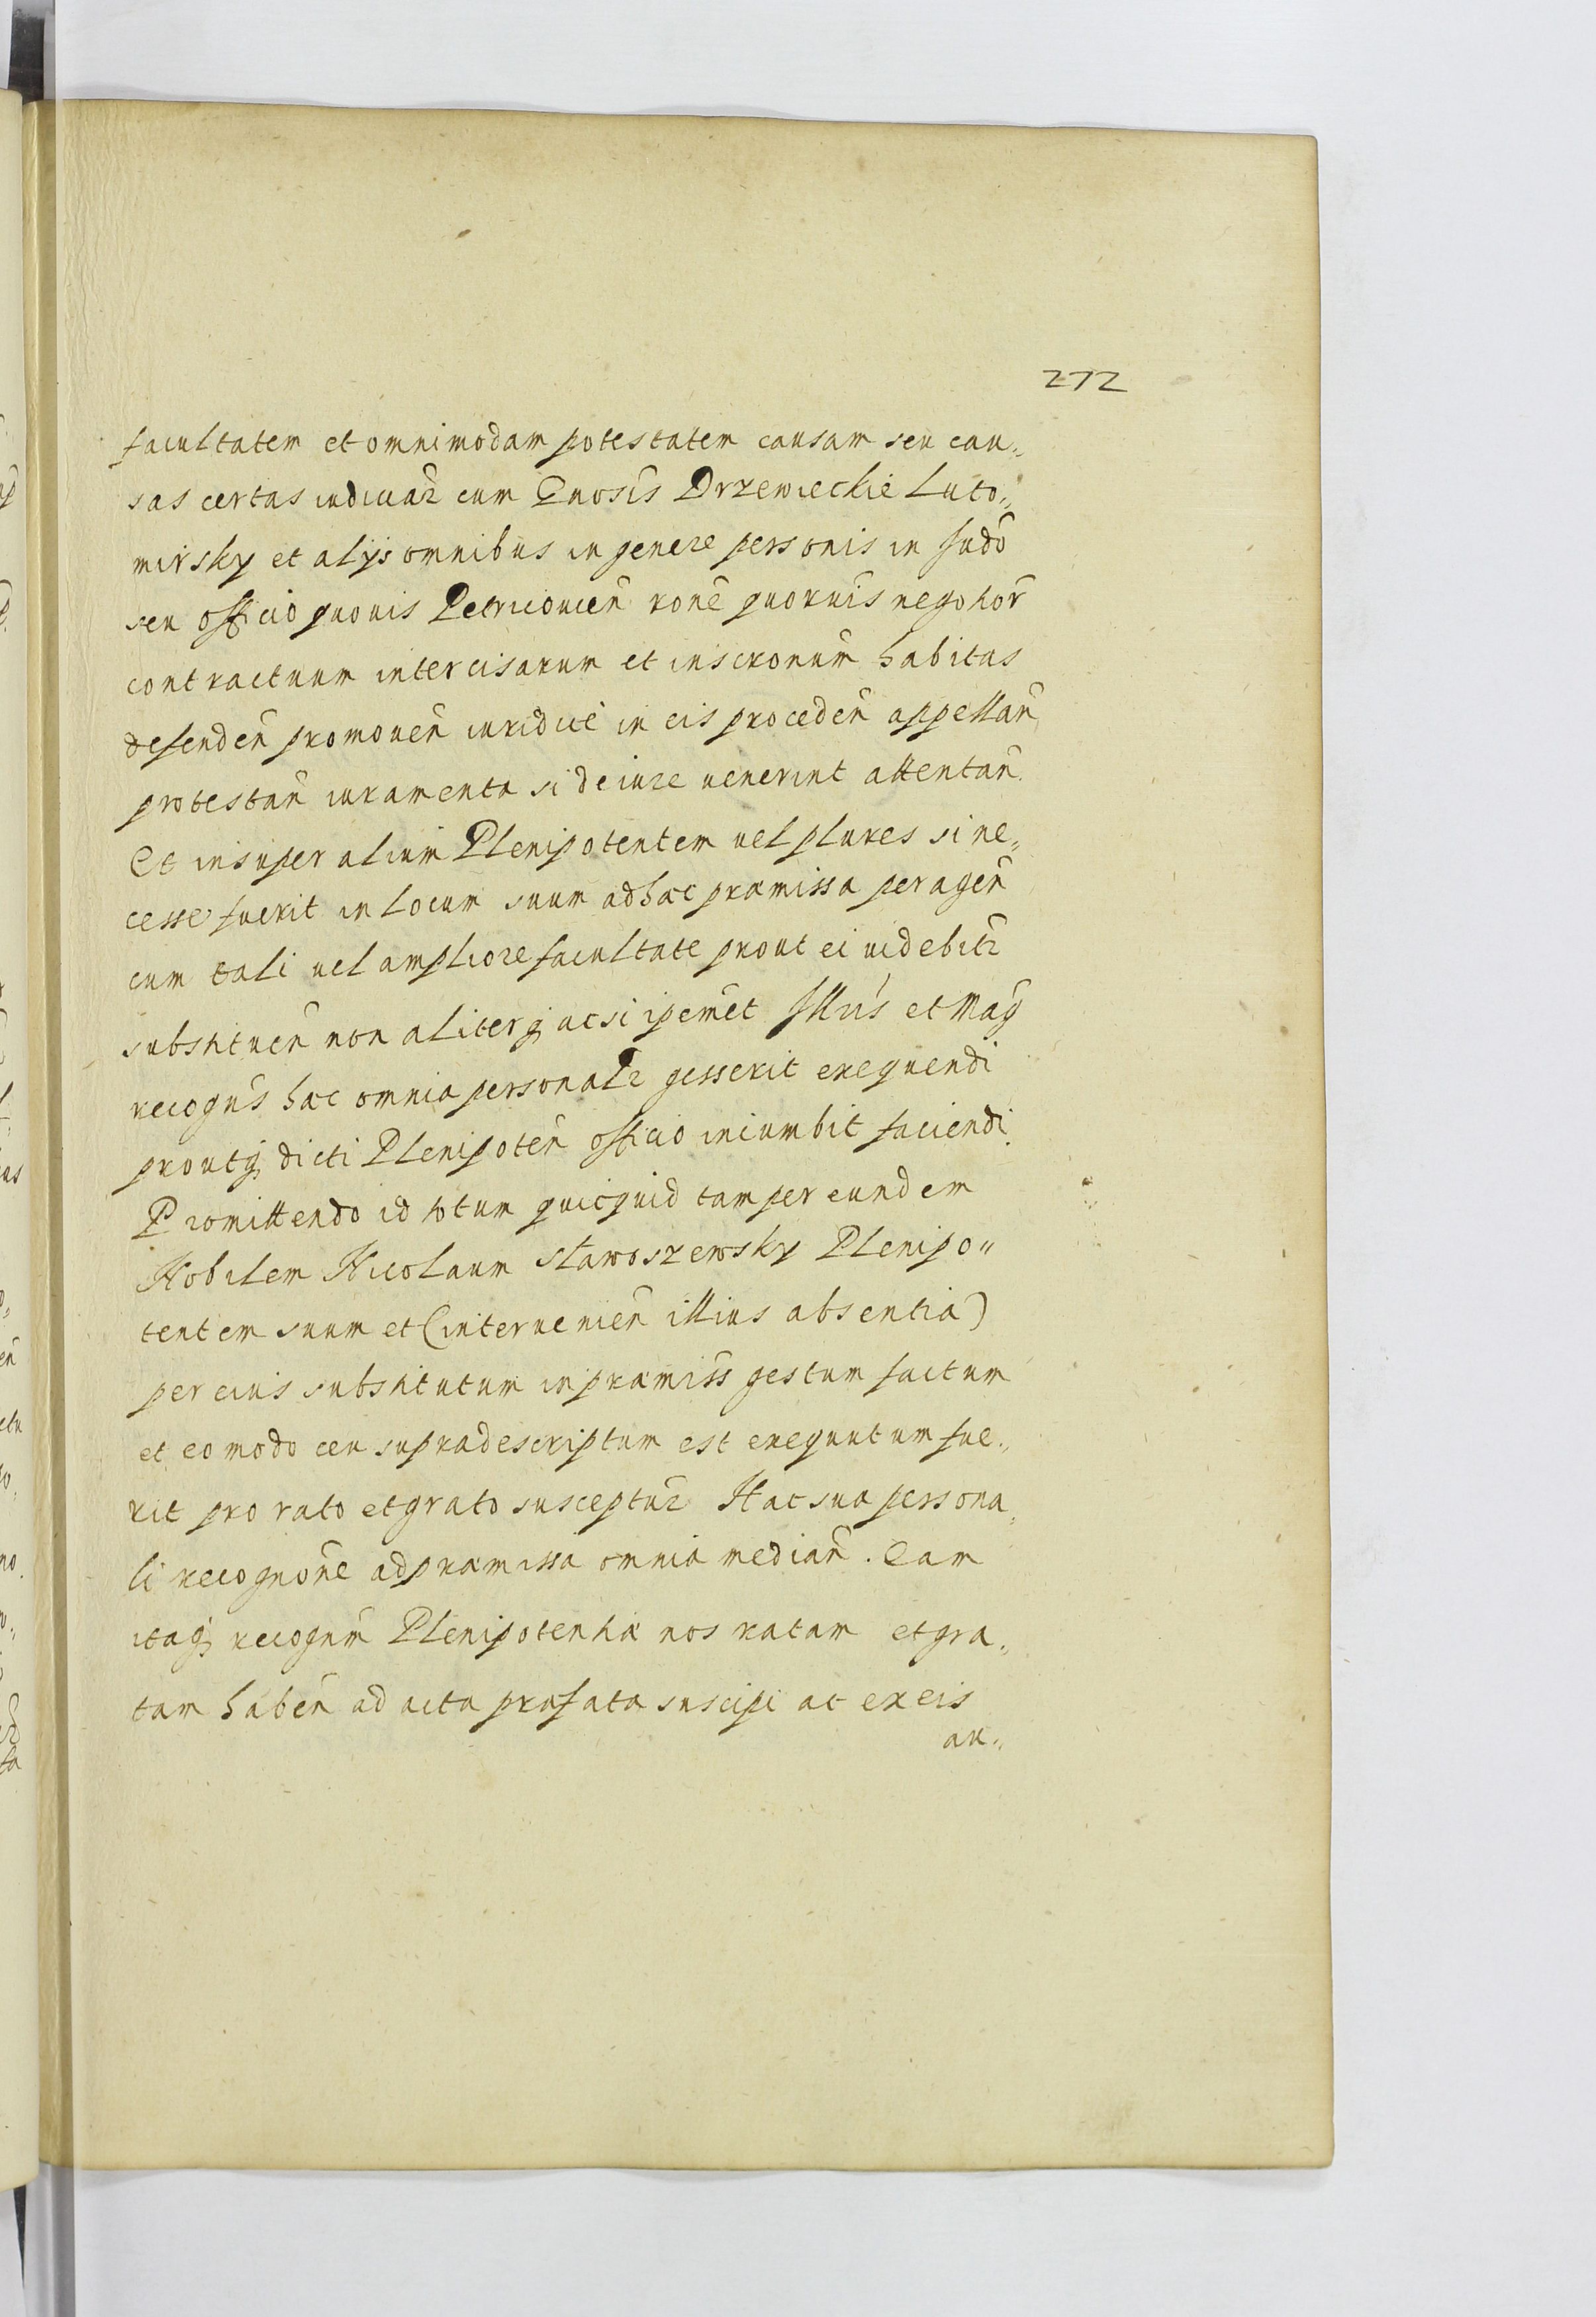 272
facultatem et omnimodam potestatem causam seu cau„
sas certas iudicial cum Gnosis Drzewieckie Luto„
mirsky et alijs omnibus in genere personis in Iudo
seu officio quouis Petricouien rone quoruis negotior
contractuum intercisarum et inscronum habitas
defenden promouen iuridice in eis proceden appellan
protestan iuramenta si de iure uenerint attentan.
Et insuper alium Plenipotentem uel plures si ne„
cesse fuerit in locum suum ad hæc præmissa peragen
cum tali uel ampliore facultate prout ei uidebitr
substituen non aliterq acsi ipemet Illris et Mag
recogns hæc omnia personalr gesserit exequendi
proutq dicti Plenipoten officio incumbit faciendi.
Promittendo id totum quicquid tam per eundem
Nobilem Nicolaum Stawoszewsky Plenipo„
tentem suum et (interuenien illius absentia)
per eius substitutum in præmiss gestum factum
et eo modo ceu supradescriptum est exequutum fue„
rit pro rato et grato suscepturr Hac sua persona„
li recognone ad præmissa omnia median. Eam
itaq recognm Plenipotentiæ nos ratam et gra„
tam haben ad acta præfata suscipi ac ex eis
au„